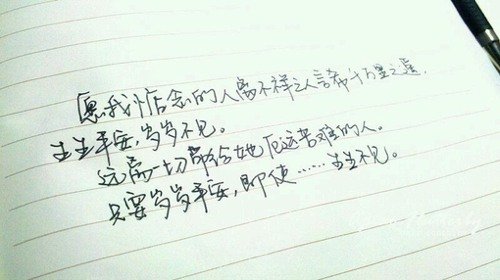 愿我惦念的人离不祥之人言希十万里之远.
生生平安,岁岁不见。
远离一切带给她厄运苦难的人。
只要岁岁平安,即使……生生不见。